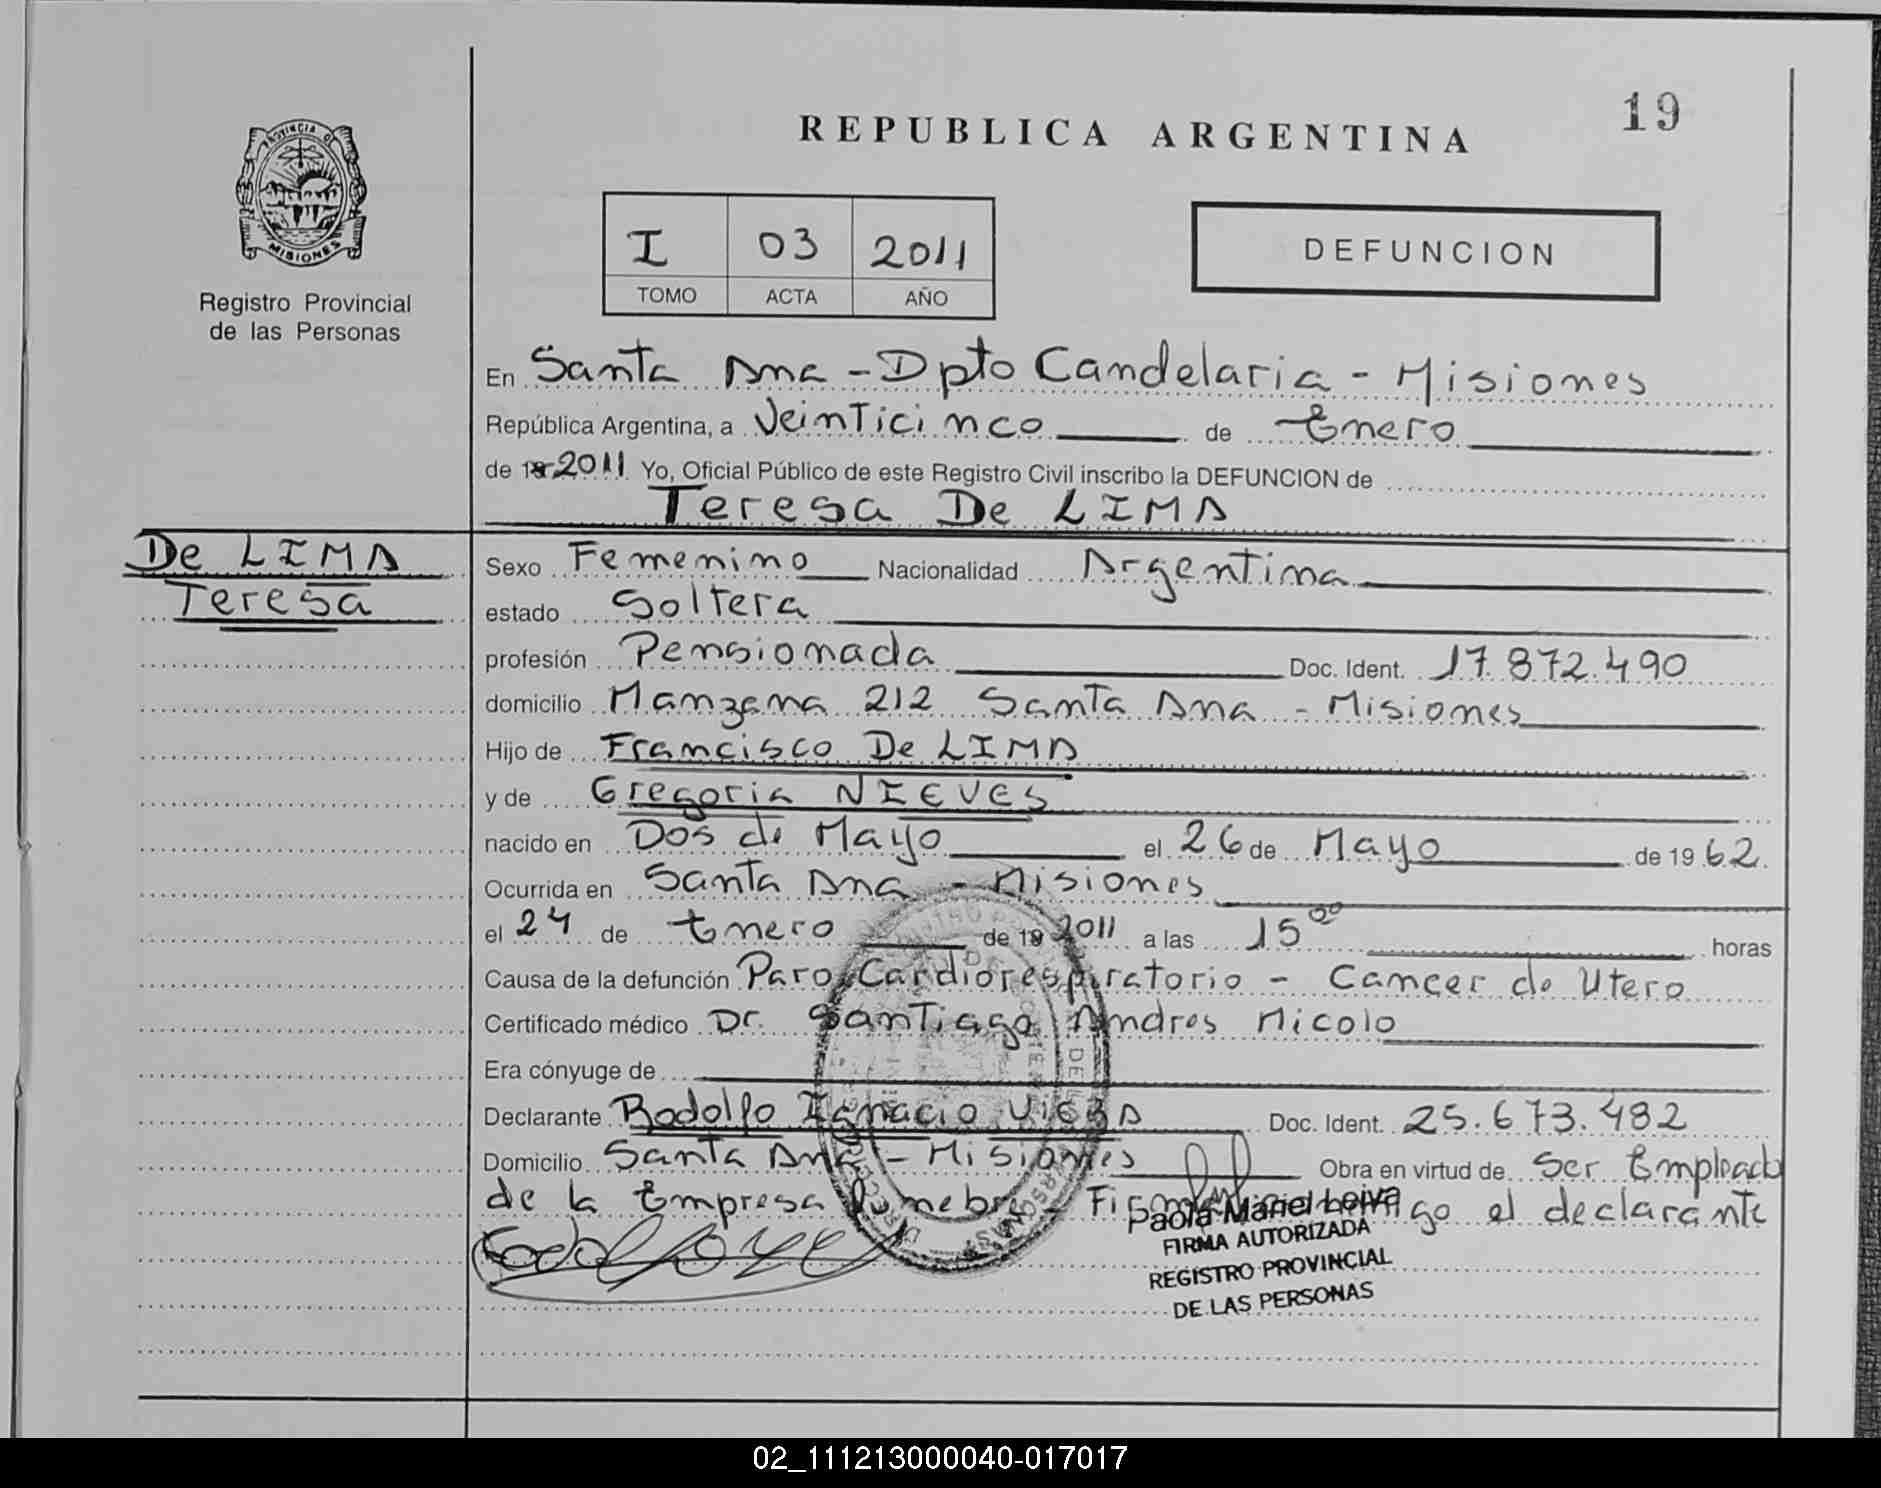 19
REPUBLICA ARGENTINA
PROVINCIA DE MISIONES
Registro Provincial
de las Personas
I 03 2011
TOMO ACTA AÑO
DEFUNCION
En Santa Ana - Dpto Candelaria - Misiones
República Argentina, a Veinticinco de Enero
de 19 2011 Yo, Oficial Público de este Registro Civil inscribo la DEFUNCION de
Teresa De LIMA
De LIMA
Teresa
Sexo Femenino Nacionalidad Argentina
estado Soltera
profesión Pensionada Doc. Ident. 17.872.490
domicilio Manzana 212 Santa Ana - Misiones
Hijo de Francisco De LIMA
y de Gregoria NIEVES
nacido en Dos de Mayo el 26 de Mayo de 1962.
Ocurrida en Santa Ana - Misiones
el 24 de Enero de 19 2011 a las 15°° horas
Causa de la defunción Paro Cardiorespiratorio - Cancer de Utero
Certificado médico Dr. Santiago Andres Nicolo
Era cónyuge de
Declarante Rodolfo Ignacio Doc. Ident. 25.673.482
Domicilio Santa Ana - Misiones Obra en virtud de Ser Empleado
de la Empresa Funebre el declarante
Paola Mariel Leiva
FIRMA AUTORIZADA
REGISTRO PROVINCIAL
DE LAS PERSONAS
02_111213000040-017017